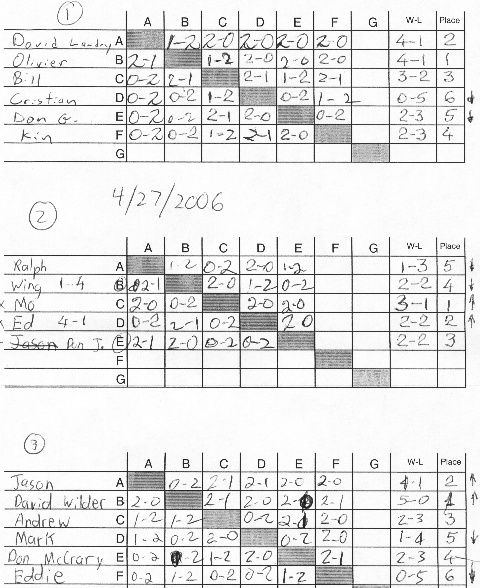 1
A B C D E F G W-L Place
David Landry A 1-2 2-0 2-0 2-0 2-0 4-1 2
Olivier B 2-1 1-2 2-0 2-0 2-0 4-1 1
Bill C 0-2 2-1 2-1 1-2 2-1 3-2 3
Cristian D 0-2 0-2 1-2 0-2 1-2 0-5 6 ↓
Don G. E 0-2 0-2 2-1 2-0 0-2 2-3 5 ↓
Kin F 0-2 0-2 1-2 2-1 2-0 2-3 4
G
4/27/2006
2
A B C D E F G W-L Place
Ralph A 1-2 0-2 2-0 1-2 1-3 5 ↓
Wing 1-4 B 2-1 2-0 1-2 0-2 2-2 4 ↓
Mo C 2-0 0-2 2-0 2-0 3-1 1 ↑
Ed 4-1 D 0-2 2-1 0-2 2 0 2-2 2 ↑
Jason J. E 2-1 2-0 0-2 0-2 2-2 3
F
G
3
A B C D E F G W-L Place
Jason A 0-2 2-1 2-1 2-0 2-0 4-1 2 ↑
David Wilder B 2-0 2-1 2-0 2-1 5-0 1 ↑
Andrew C 1-2 1-2 0-2 2-0 2-3 3
Mark D 1-2 0-2 2-0 0-2 2-0 1-4 5 ↓
Don McCrary E 0-2 0-2 1-2 2-0 2-1 2-3 4
Eddie F 0-2 1-2 0-2 0-2 1-2 0-5 6 ↓